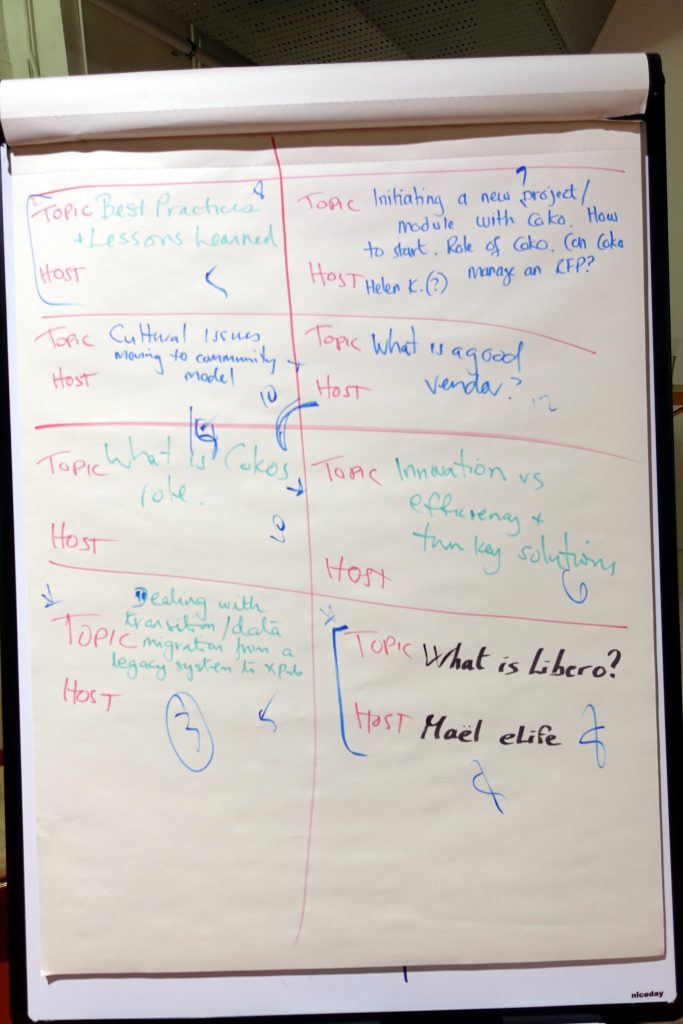 TOPIC Best Practices
+ Lessons Learned
HOST
TOPIC Initiating a new project/
module with Coko. How
to start. Role of Coko. Can Coko
manage an RFP?
HOST Helen K.(?)
TOPIC Cultural Issues
moving to community
model
HOST
10
TOPIC What is a good
vendor?
HOST
TOPIC What is Cokos
role.
HOST
TOPIC Innovation vs
efficiency +
turn key solutions
HOST
TOPIC Dealing with
transition/data
migration from a
legacy system to xpub
HOST
3
TOPIC What is Libero?
HOST Maël eLife
niceday